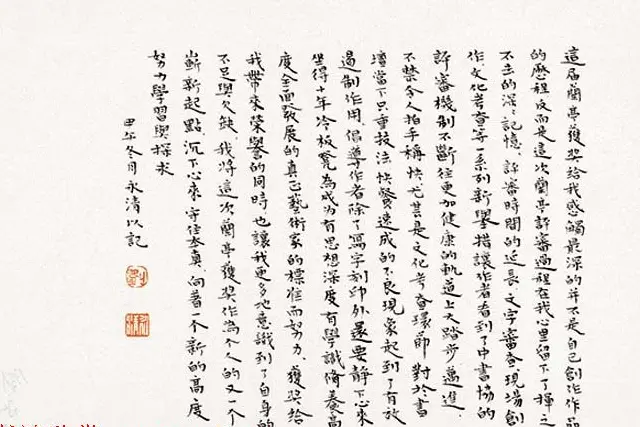 這届蘭亭獲奖给我感觸最深的并不是自己創作作品
的歷程反而是這次蘭亭評審過程在我心里留下了揮之
不去的深深記憶，評審時間的延長、文字審查、現場創
作、文化考查等一系列新舉措讓作者看到了中書協的
評審機制不斷往更加健康的軌道上大踏步邁進
不禁令人拍手稱快尤其是文化考查環節對於書
壇當下只重技法快餐速成的不良現象起到了有放
遏制作用。倡導作者除了寫字刻印外還要静下心來
坐得十年冷板凳為成为有思想深度有學識脩養高
度全面發展的真正藝術家的標准而努力。獲奖給
我帶來榮譽的同時也讓我更多地意識到了自身的
不足與欠缺，我將這次蘭亭獲奖作為个人的又一个
嶄新起點沉下心來守住本真，向着一个新的高度
努力學習與探求
甲午冬月永清以記